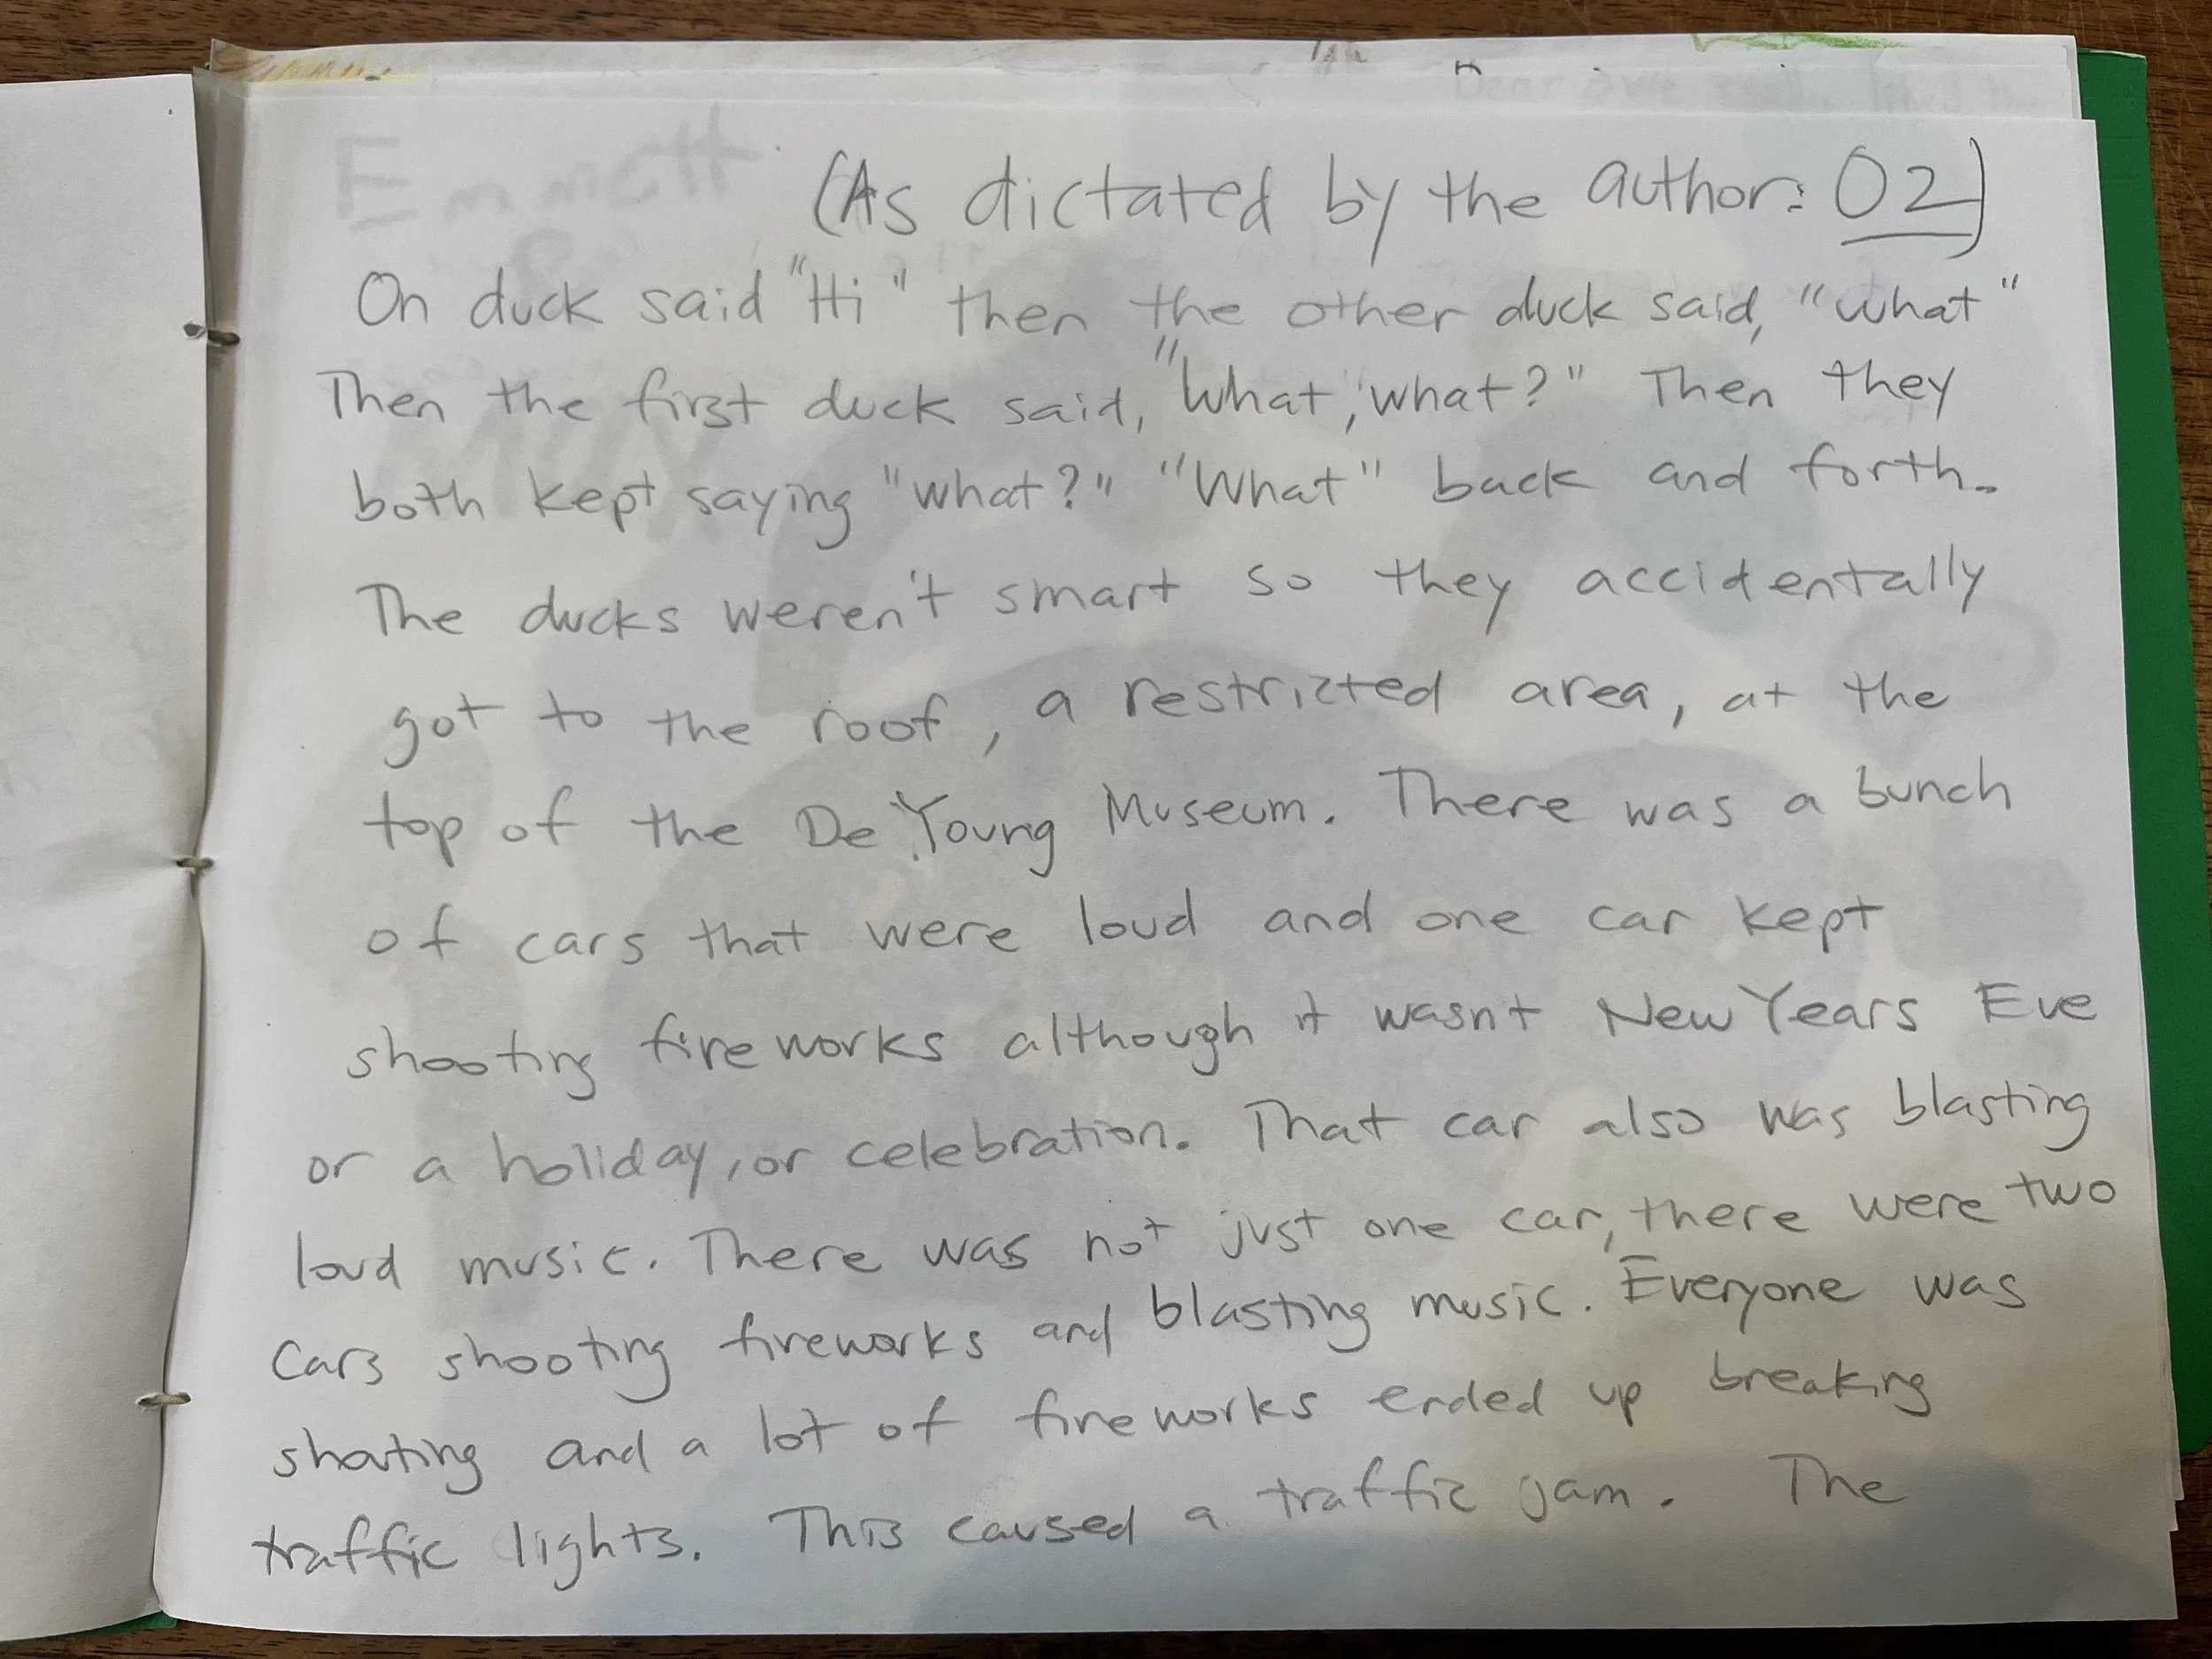 Emmett
(As dictated by the author: OZ)
On duck said "Hi" then the other duck said, "what"
Then the first duck said, "What, what?" Then they
both kept saying "what?" "What" back and forth.
The ducks weren't smart so they accidentally
got to the roof, a restricted area, at the
top of the De Young Museum. There was a bunch
of cars that were loud and one car kept
shooting fireworks although it wasnt New Years Eve
or a holiday, or celebration. That car also was blasting
loud music. There was not just one car, there were two
cars shooting fireworks and blasting music. Everyone was
shouting and a lot of fireworks ended up breaking
traffic lights. This caused a traffic jam. The